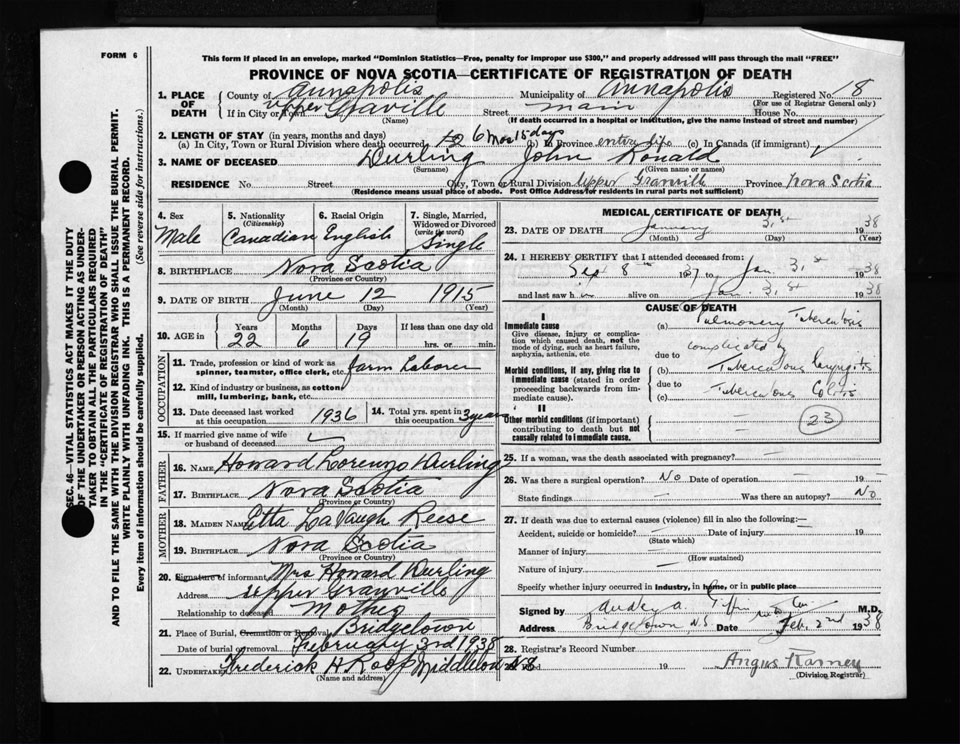 FORM 6
This form if placed in an envelope, marked "Dominion Statistics—Free, penalty for improper use $300," and properly addressed will pass through the mail "FREE"
PROVINCE OF NOVA SCOTIA—CERTIFICATE OF REGISTRATION OF DEATH
1. PLACE OF DEATH County of Annapolis Municipality of Annapolis Registered No. 8
(For use of Registrar General only)
If in City or Town Upper Granville Street main House No.
(Name) (If death occurred in a hospital or institution, give the name instead of street and number)
2. LENGTH OF STAY (in years, months and days)
(a) In City, Town or Rural Division where death occurred 22 6 Mos 15 days (b) In Province entire life (c) In Canada (if immigrant)
3. NAME OF DECEASED Durling John Ronald
(Surname) (Given name or names)
RESIDENCE No. Street City, Town or Rural Division Upper Granville Province Nova Scotia
(Residence means usual place of abode. Post Office Address for residents in rural parts not sufficient)
4. Sex Male
5. Nationality (Citizenship) Canadian
6. Racial Origin English
7. Single, Married, Widowed or Divorced (write the word) Single
8. BIRTHPLACE Nova Scotia
(Province or Country)
9. DATE OF BIRTH June 12 1915
(Month) (Day) (Year)
10. AGE in Years 22 Months 6 Days 19 If less than one day old hrs. or min.
OCCUPATION
11. Trade, profession or kind of work as spinner, teamster, office clerk, etc. Farm Laborer
12. Kind of industry or business, as cotton mill, lumbering, bank, etc.
13. Date deceased last worked at this occupation 1936
14. Total yrs. spent in this occupation 3 years
15. If married give name of wife or husband of deceased
FATHER
16. NAME Howard Lorenzo Durling
17. BIRTHPLACE Nova Scotia
(Province or Country)
MOTHER
18. MAIDEN NAME Etta LaVaugh Reese
19. BIRTHPLACE Nova Scotia
(Province or Country)
20. Signature of informant Mrs Howard Durling
Address Upper Granville
Relationship to deceased Mother
21. Place of Burial, Cremation or Removal Bridgetown
Date of burial or removal February 3rd 1938
22. UNDERTAKER Frederick H Roop Middleton N.S
(Name and address)
MEDICAL CERTIFICATE OF DEATH
23. DATE OF DEATH January 31st 1938
(Month) (Day) (Year)
24. I HEREBY CERTIFY that I attended deceased from:
Sept 8th 1937 to Jan. 31st 1938
and last saw him alive on Jan. 31st 1938
CAUSE OF DEATH
I
Immediate cause
Give disease, injury or complication which caused death, not the mode of dying, such as heart failure, asphyxia, asthenia, etc.
(a) Pulmonary Tuberculosis
due to complicated by
Morbid conditions, if any, giving rise to immediate cause (stated in order proceeding backwards from immediate cause).
(b) Tuberculous Laryngitis
due to
(c) Tuberculous Colitis
II
Other morbid conditions (if important) contributing to death but not causally related to immediate cause.
23
25. If a woman, was the death associated with pregnancy?
26. Was there a surgical operation? No Date of operation 19
State findings Was there an autopsy? No
27. If death was due to external causes (violence) fill in also the following:—
Accident, suicide or homicide? Date of injury 19
(State which)
Manner of injury
(How sustained)
Nature of injury
Specify whether injury occurred in industry, in home, or in public place
Signed by Dudley A. M.D.
Address Bridgetown N.S. Date Feb. 2nd 1938
28. Registrar's Record Number
19 Angus Ramey
(Division Registrar)
SEC. 46—VITAL STATISTICS ACT MAKES IT THE DUTY
OF THE UNDERTAKER OR PERSON ACTING AS UNDER-
TAKER TO OBTAIN ALL THE PARTICULARS REQUIRED
IN THE "CERTIFICATE OF REGISTRATION OF DEATH"
AND TO FILE THE SAME WITH THE DIVISION REGISTRAR WHO SHALL ISSUE THE BURIAL PERMIT.
WRITE PLAINLY WITH UNFADING INK. THIS IS A PERMANENT RECORD.
Every item of information should be carefully supplied. (See reverse side for instructions.)